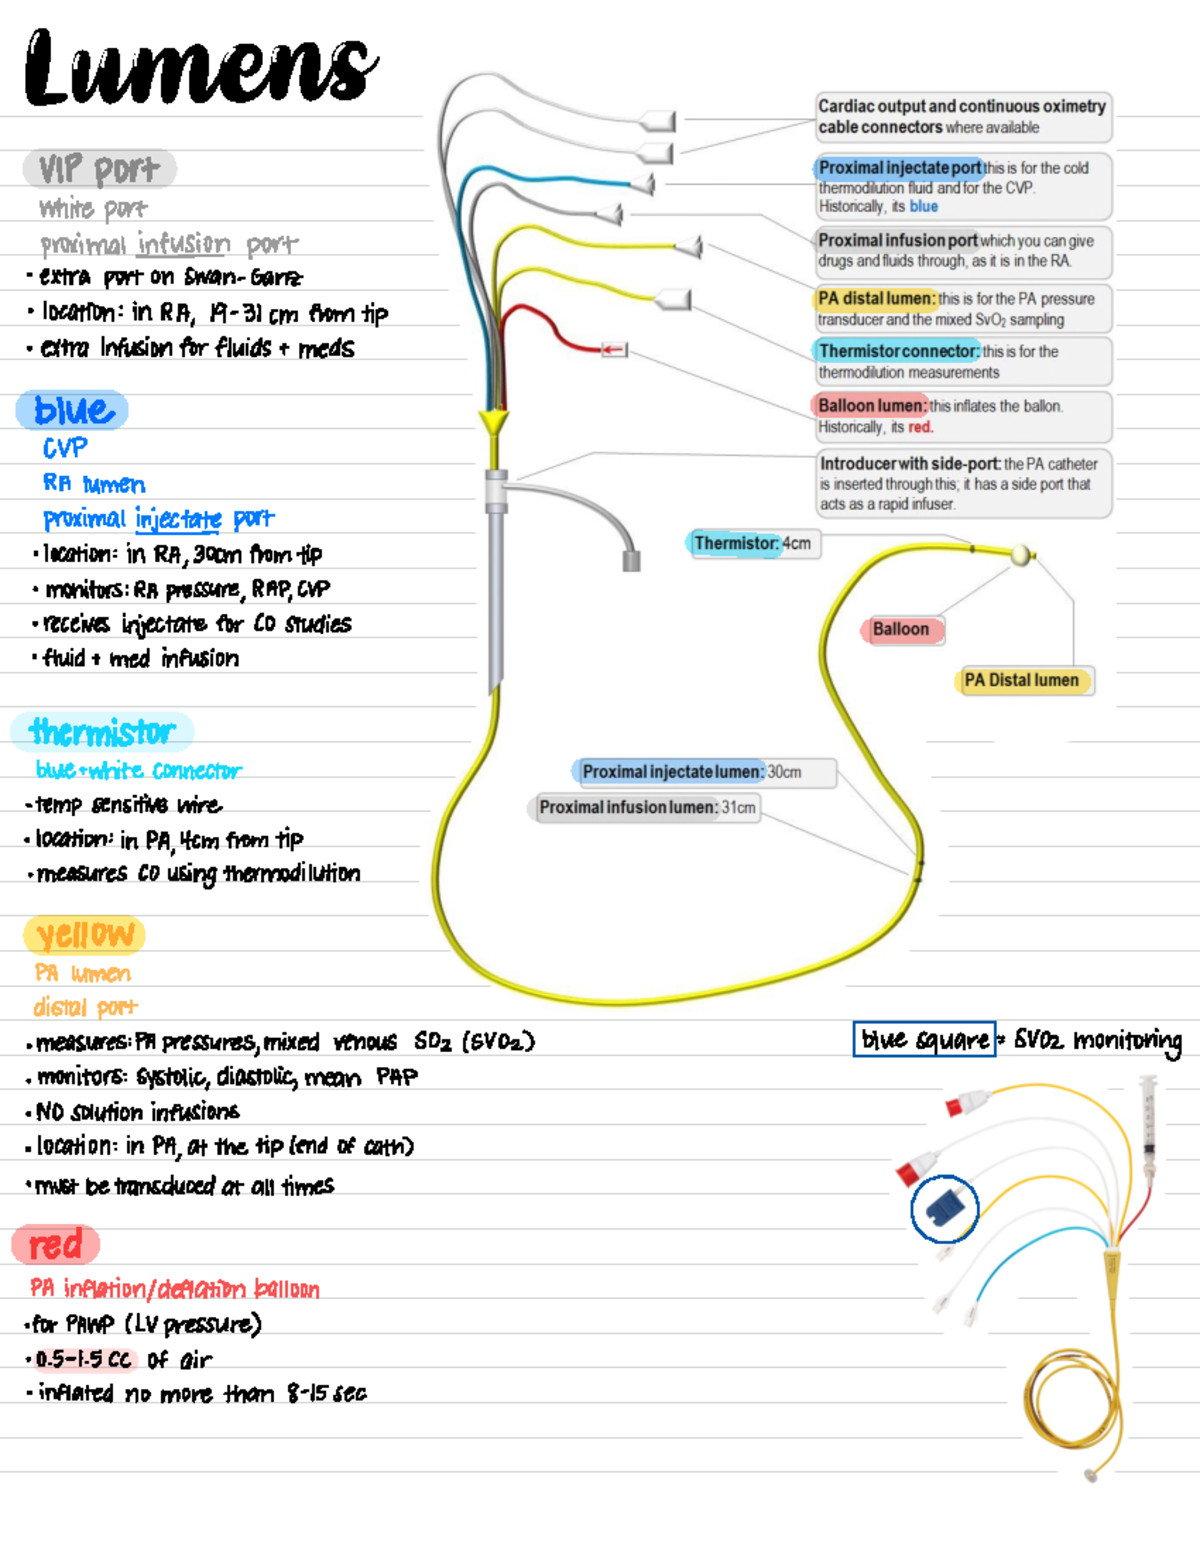 Lumens
VIP port
white port
proximal infusion port
• extra port on Swan-Ganz
• location: in RA, 19-31 cm from tip
• extra infusion for fluids + meds
blue
CVP
RA lumen
proximal injectate port
• location: in RA, 30cm from tip
• monitors: RA pressure, RAP, CVP
• receives injectate for CO studies
• fluid + med infusion
thermistor
blue + white connector
- temp sensitive wire
• location: in PA, 4cm from tip
• measures CO using thermodilution
yellow
PA lumen
distal port
• measures: PA pressures, mixed venous SO2 (SVO2)
• monitors: systolic, diastolic, mean PAP
• NO solution infusions
• location: in PA, at the tip (end of cath)
• must be transduced at all times
red
PA inflation/deflation balloon
• for PAWP (LV pressure)
• 0.5-1.5 cc of air
- inflated no more than 8-15 sec
Cardiac output and continuous oximetry
cable connectors where available
Proximal injectate port this is for the cold
thermodilution fluid and for the CVP.
Historically, its blue
Proximal infusion port which you can give
drugs and fluids through, as it is in the RA.
PA distal lumen: this is for the PA pressure
transducer and the mixed SvO2 sampling
Thermistor connector: this is for the
thermodilution measurements
Balloon lumen: this inflates the ballon.
Historically, its red.
Introducer with side-port: the PA catheter
is inserted through this; it has a side port that
acts as a rapid infuser.
Thermistor: 4cm
Balloon
PA Distal lumen
Proximal injectate lumen: 30cm
Proximal infusion lumen: 31cm
blue square = SVO2 monitoring